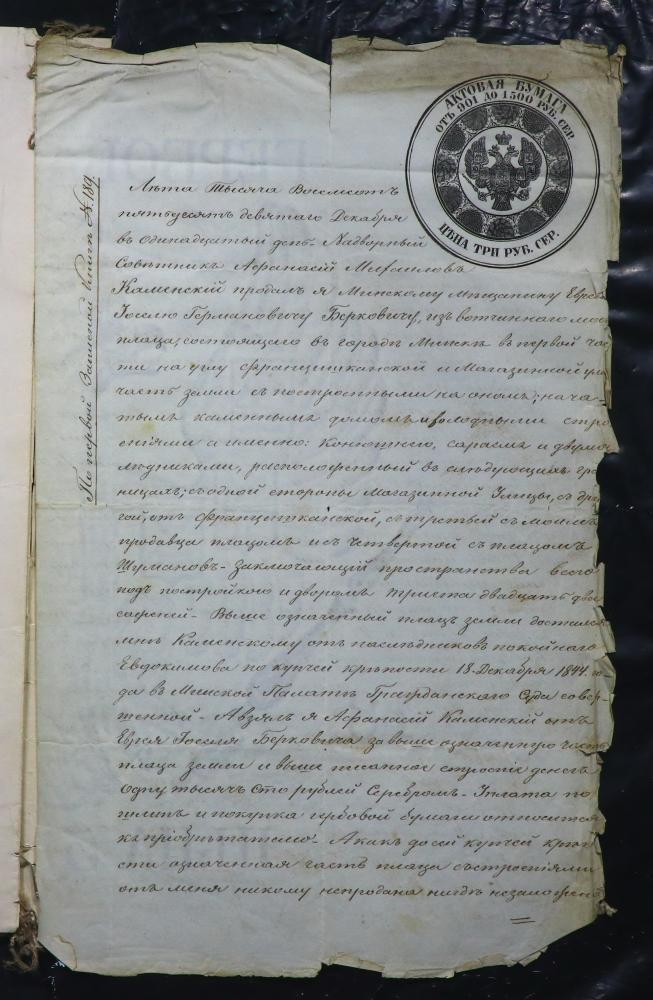 АКТОВАЯ БУМАГА
ОТЪ 901 ДО 1500 РУБ. СЕР.
ЦѢНА ТРИ РУБ. СЕР.
По первой Записной книгѣ № 189.
Лѣта Тысяча Восемсотъ
пятьдесятъ девятаго Декабря
въ одинадцатый день. Надворный
Совѣтникъ Афанасій Михаиловъ
Каменскій продалъ я Минскому мѣщанину Еврею
Іоселю Германовичу Берковичу, изъ вотчиннаго моего
плаца; состоящаго въ городѣ Минскѣ въ первой час-
ти на углу Францишканской и Магазинной улицъ
часть земли съ построенными на ономъ; нача-
тымъ каменнымъ домомъ и холодными стро
еніями а именно: конюшнею, сараемъ и двумя
людниками, расположенный въ слюдующихъ гра
ницахъ; съ одной стороны Магазинной Улицы, съ дру
гой, отъ Францишканской, съ третьей съ моимъ
продавца плацомъ и съ четвертой съ плацомъ
Шумановъ - Заключающій пространства всего
подъ постройкою и дворомъ триста двадцать двѣ
саженей - Выше означенный плацъ земли достался
мнѣ Каменскому отъ наслѣдниковъ покойнаго
Евдокимова по купчей крѣпости 18 Декабря 1844 го
да въ Минской Палатѣ Гражданскаго Суда совер-
шенной - А взялъ я Афанасій Каменскій отъ
Еврея Іоселя Берковича за выше означенную часть
плаца земли и выше писанное строеніе денегъ
Одну тысячу Сто рублей Серебромъ - Уплата по
шлинъ и покупка гербовой бумаги относится
къ пріобрѣтателю - А какъ до сей купчей крѣпо
сти означенная часть плаца съ строеніями
отъ меня никому непродана нигдѣ незаложена